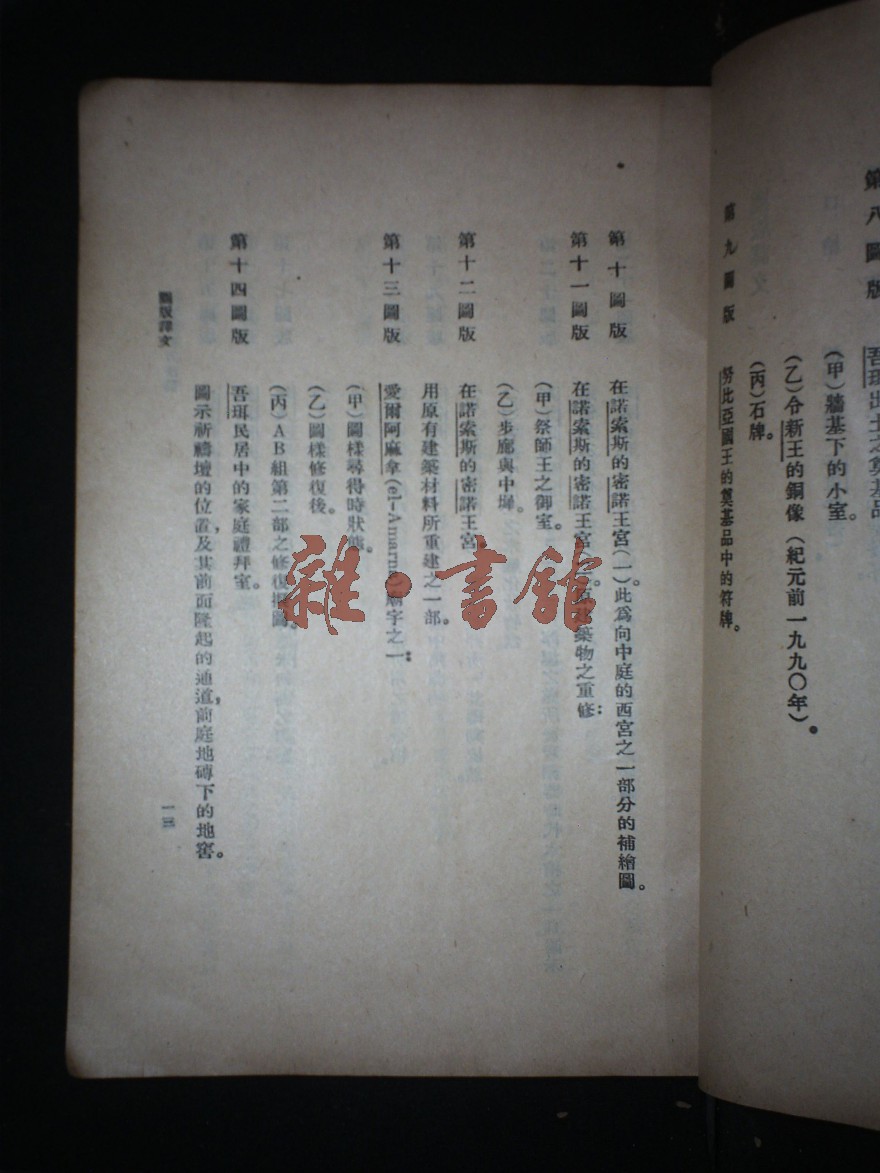 第八圖版 吾珥出土之奠基品
(甲)牆基下的小室。
(乙)令新王的銅像(紀元前一九九〇年)。
(丙)石牌。
第九圖版 努比亞國王的奠基品中的符牌。
第十圖版 在諾索斯的密諾王宮(一)。此爲向中庭的西宮之一部分的補繪圖。
第十一圖版 在諾索斯的密諾王宮 建築物之重修:
(甲)祭師王之御室。
(乙)步廊與中墀。
第十二圖版 在諾索斯的密諾王宮
用原有建築材料所重建之一部。
第十三圖版 愛爾阿麻拿(el-Amarna)廟宇之一:
(甲)圖樣尋得時狀態。
(乙)圖樣修復後。
(丙)AB組第二部之修復 圖。
第十四圖版 吾珥民居中的家庭禮拜室。
圖示祈禱壇的位置,及其前面隆起的通道,前庭地磚下的地窖。
圖版譯文
一三
雜·書館